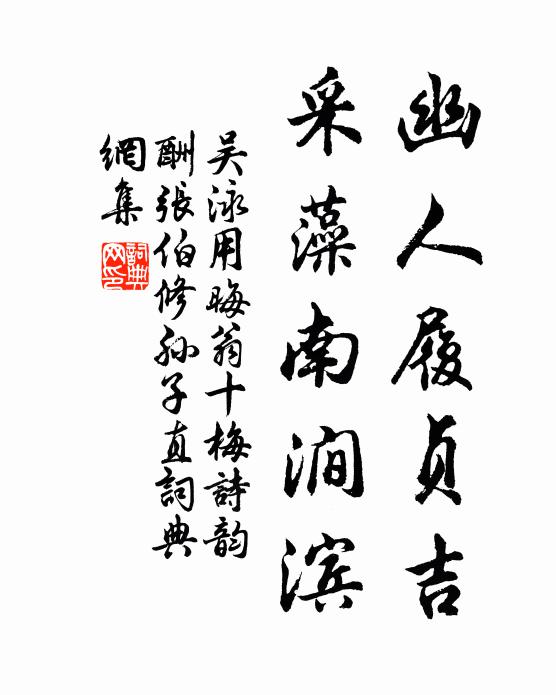 幽人履贞吉
采藻南涧滨
吴泳用晦翁十梅詩韵
酬張伯修孙子直詞典
網集
詞典網印